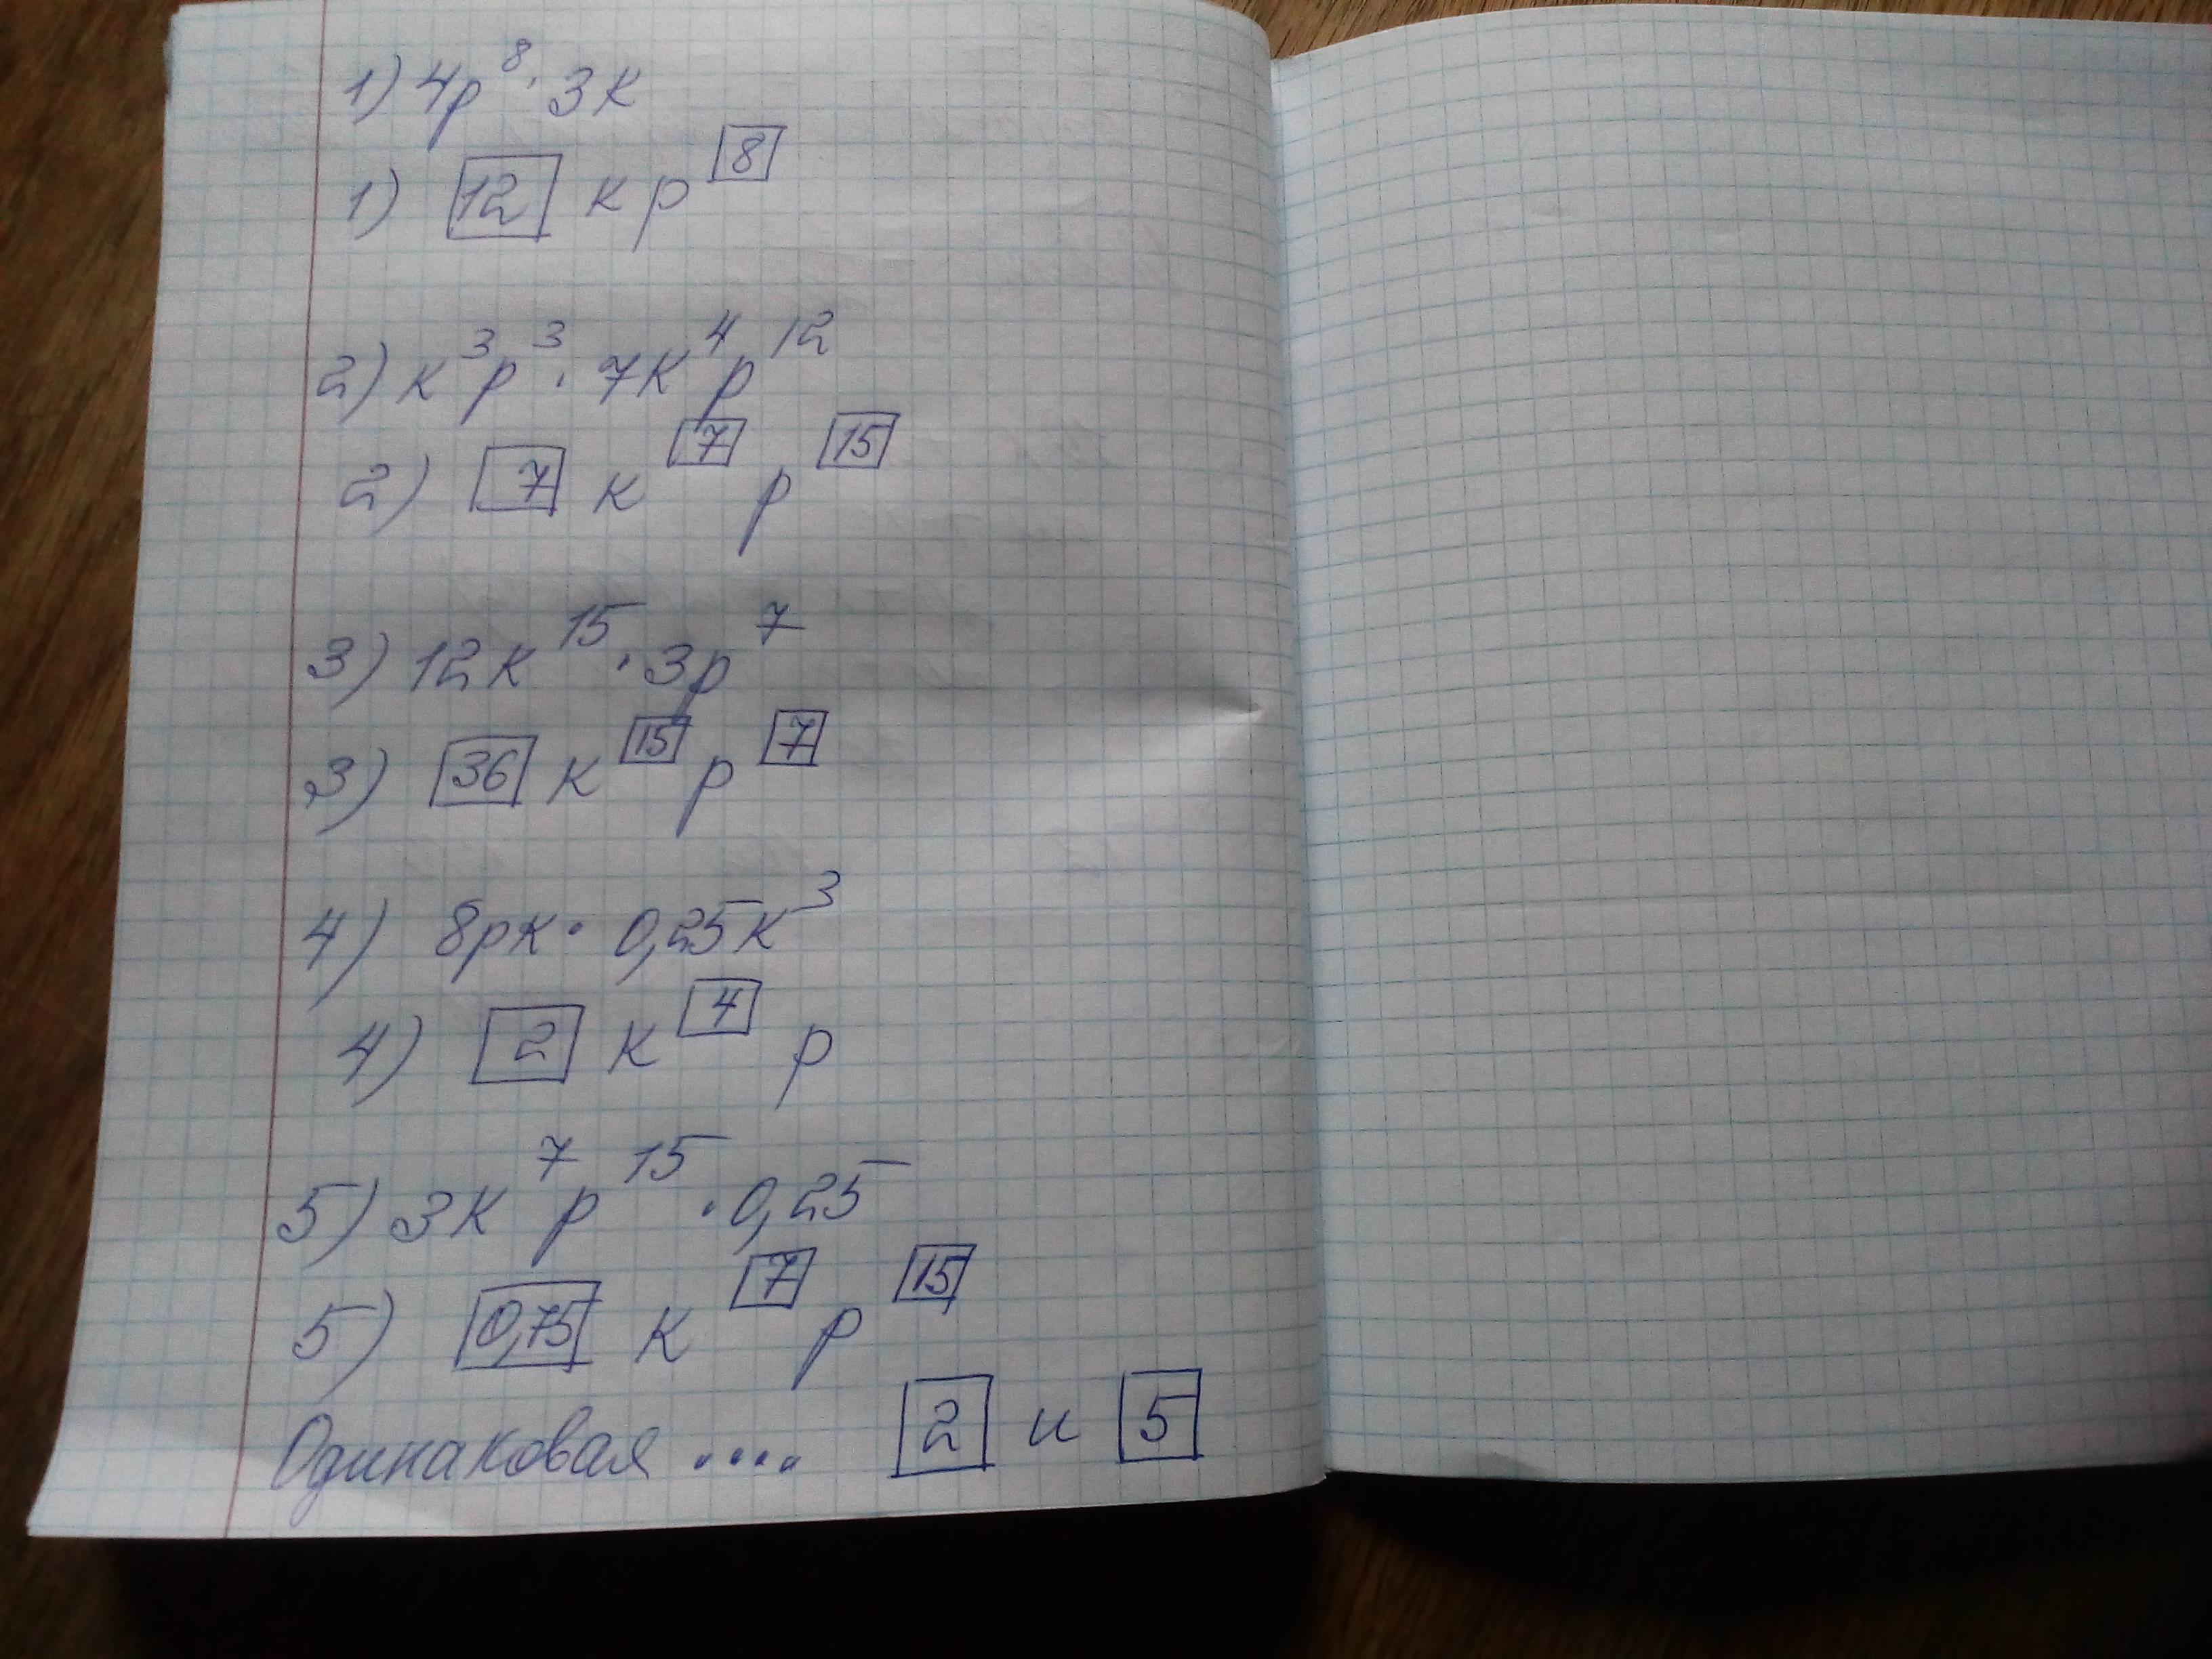 1) 4p⁸ · 3к
1) 12 кp⁸
2) к³p³ · 7к⁴p¹²
2) 7 к⁷ p¹⁵
3) 12к¹⁵ · 3p⁷
3) 36 к¹⁵ p⁷
4) 8pк · 0,25к³
4) 2 к⁴ p
5) 3к⁷p¹⁵ · 0,25
5) 0,75 к⁷ p¹⁵
Одинаковая .... 2 и 5